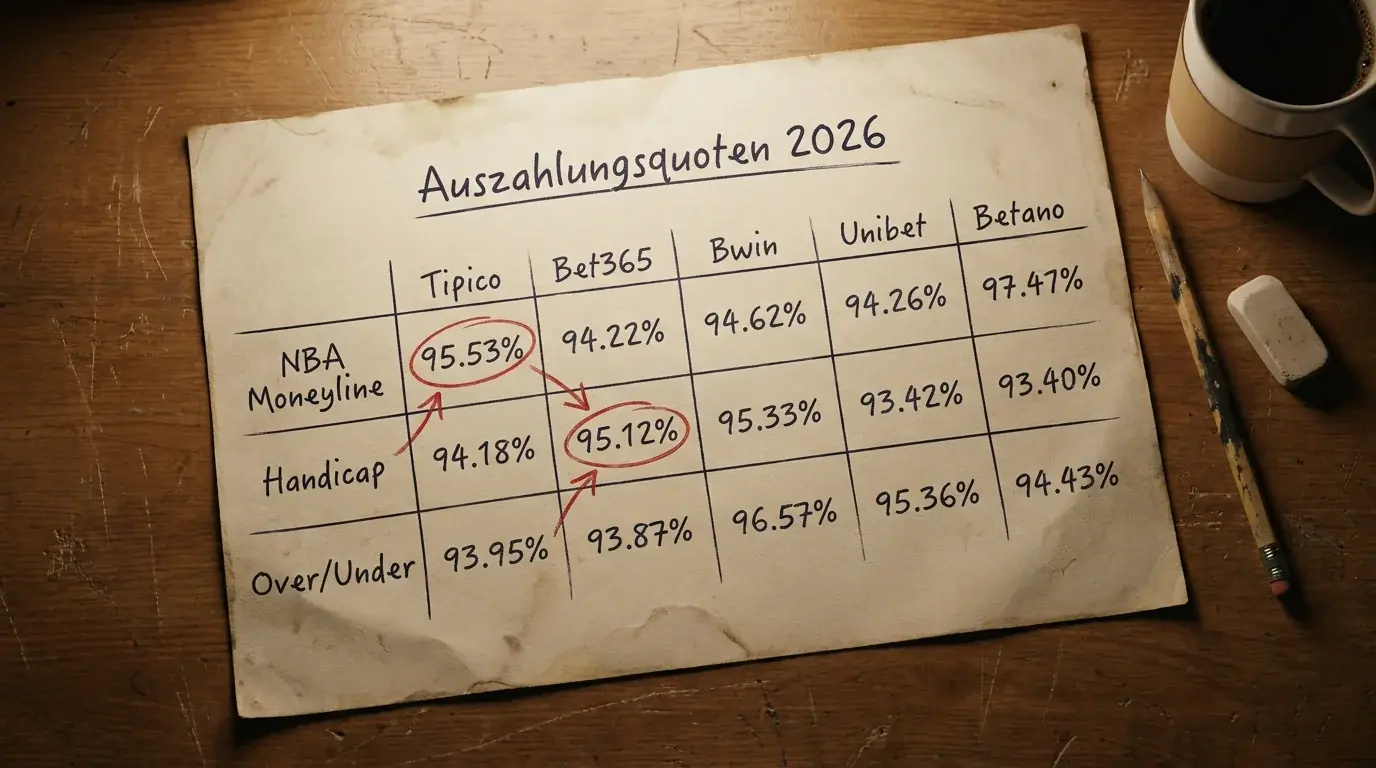 Auszahlungsquoten 2026
Tipico Bet365 Bwin Unibet Betano
NBA
Moneyline 95.53% 94.22% 94.62% 94.26% 97.47%
Handicap 94.18% 95.12% 95.33% 93.42% 93.40%
Over/Under 93.95% 93.87% 96.57% 95.36% 94.43%